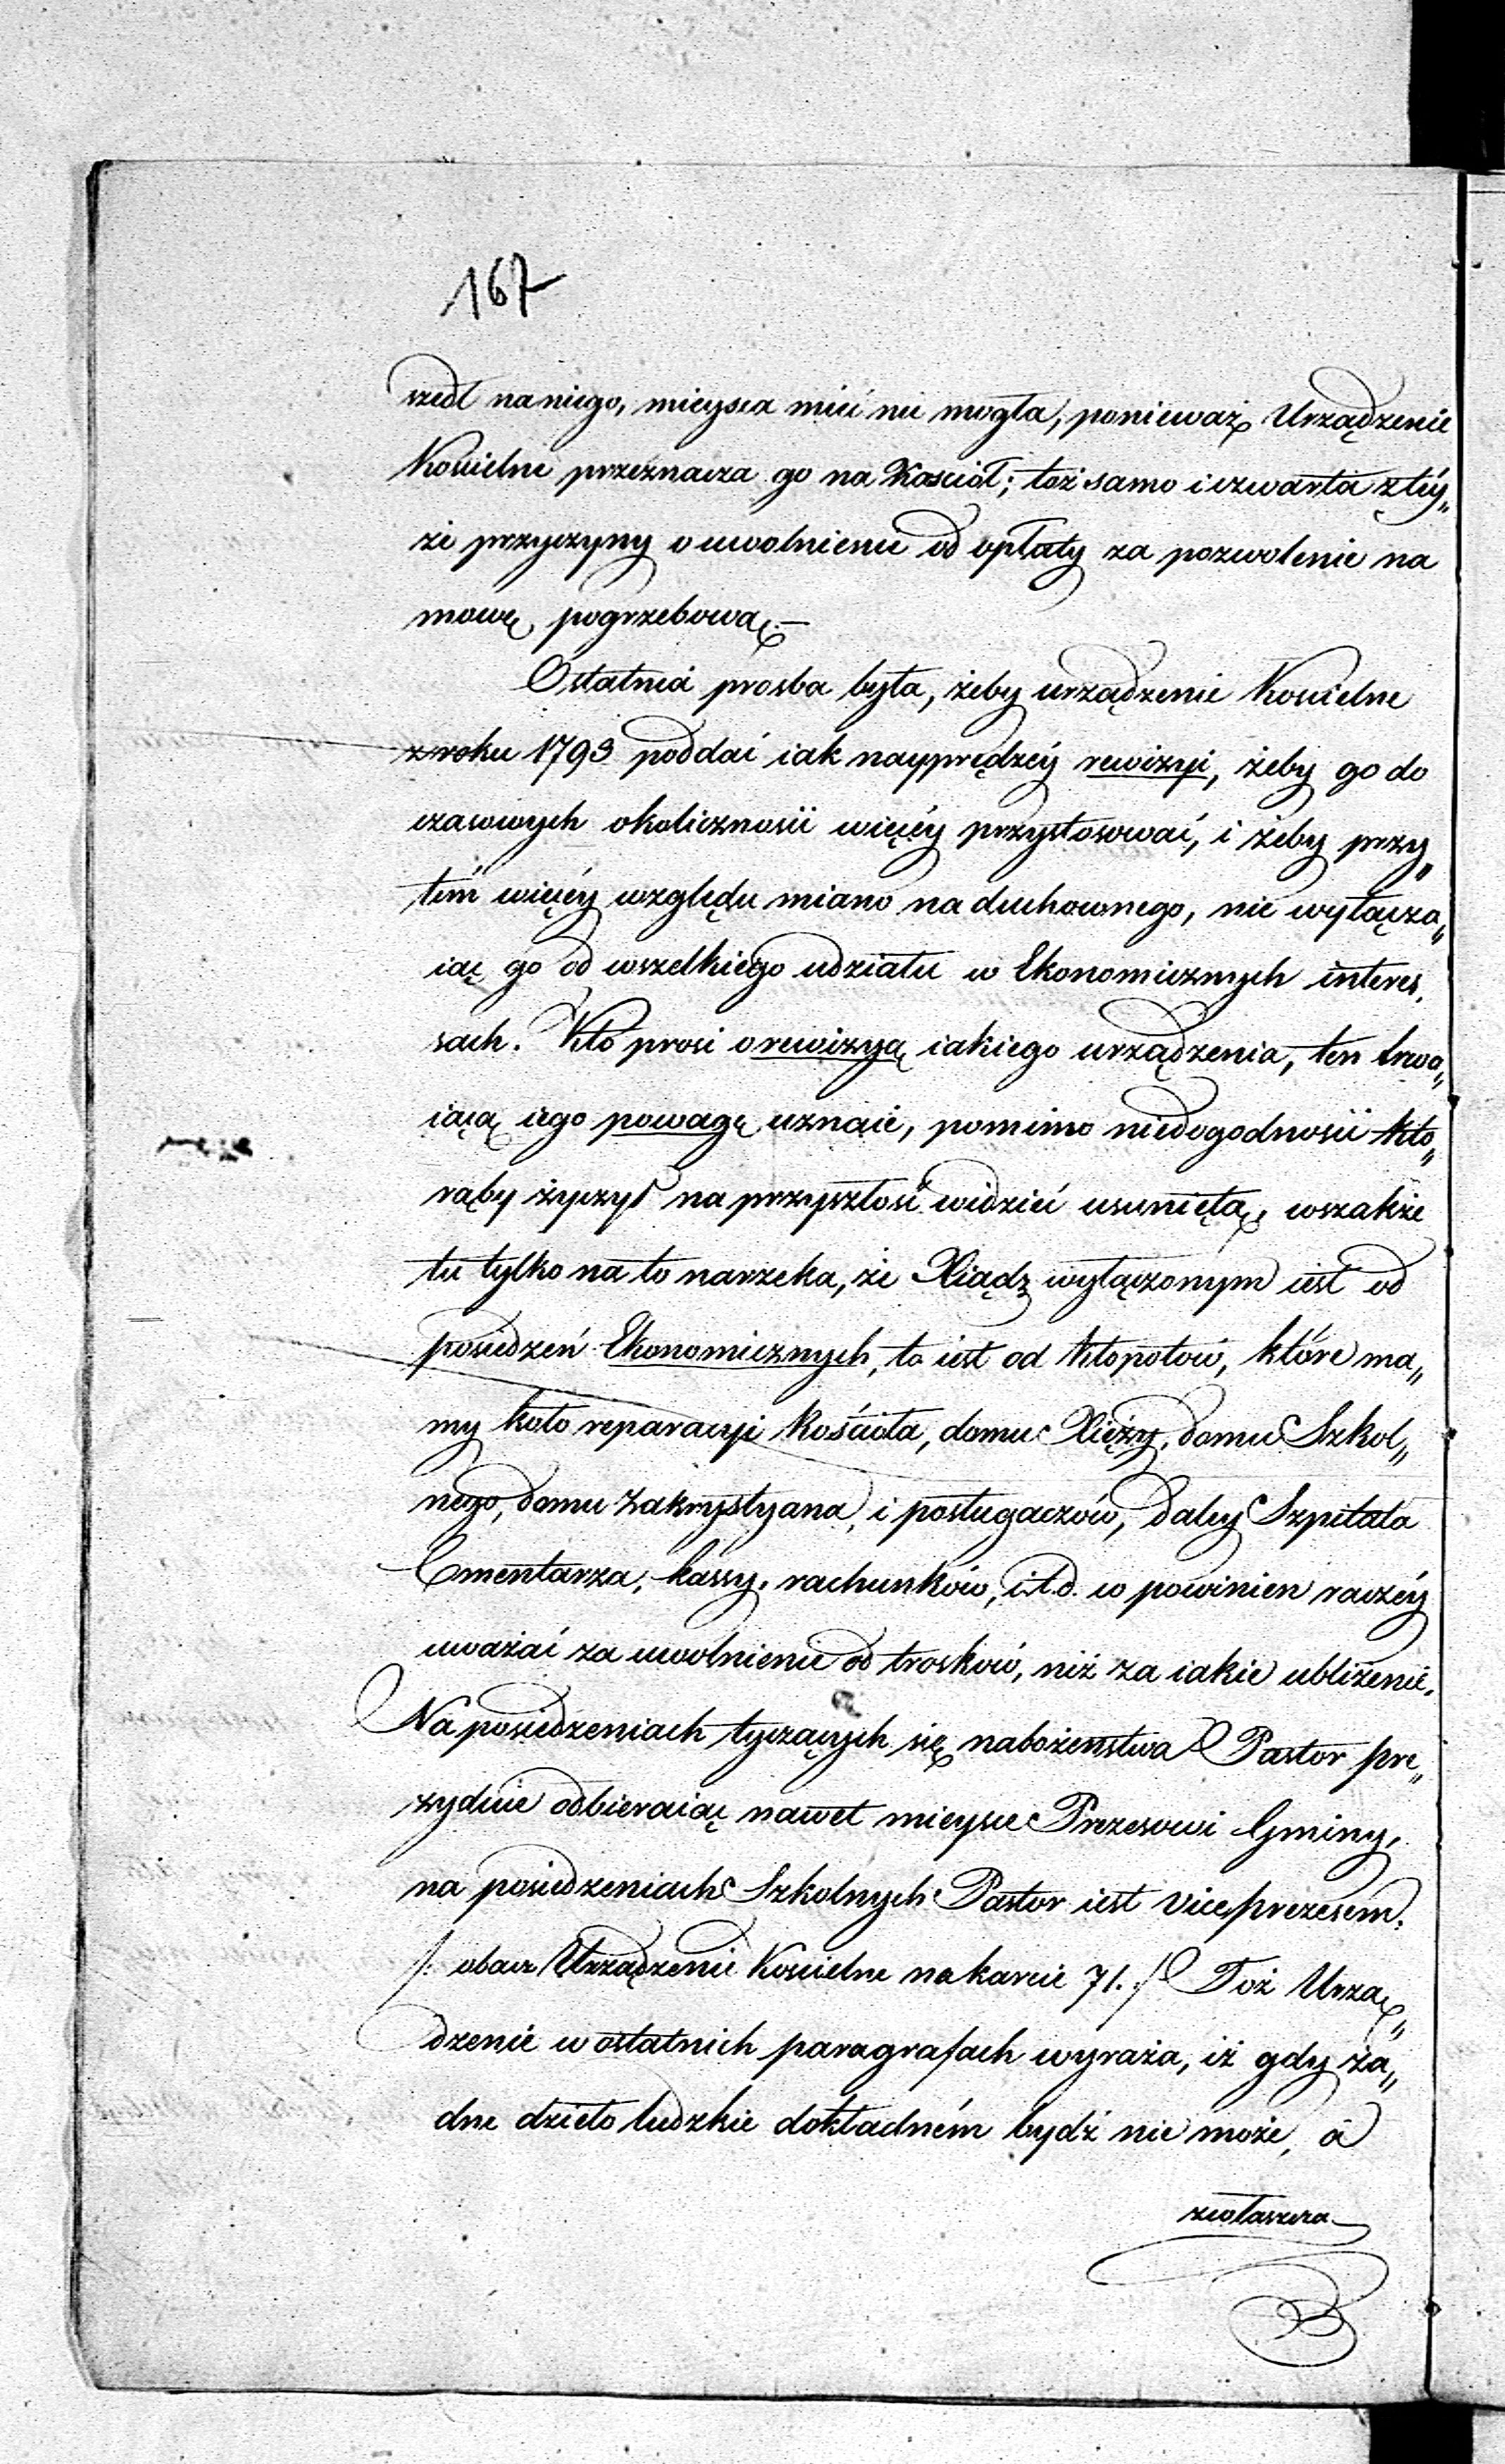 167
szedł na niego, mieysca mieć nie mogła, ponieważ Urządzenie
Kościelne przeznacza go na Kościół; toż samo i czwarta z téy„
że przyczyny o uwolnienie od opłaty za pozwolenie na
mowę pogrzebową.—
Ostatnia prosba była, żeby urządzenie Kościelne
z roku 1793 poddać iak nayprędzéy rewizyi, żeby go do
czasowych okoliczności więcéy przystosować, i żeby przy„
tém więcéy względu miano na duchownego, nie wyłącza„
iąc go od wszelkiego udziału w Ekonomicznych interes„
sach. Kto prosi o rewizyą iakiego urządzenia, ten trwa„
iącą iego powagę uznaie, pomimo niedogodności któ„
rąby życzył na przyszłość widzieć usuniętą, wszakże
tu tylko na to narzeka, że Xiądz wyłączonym iest od
posiedzeń Ekonomicznych, to iest od kłopotów, które ma„
my koło reparacyi Kościoła, domu Xięży, domu Szkol„
nego, domu Zakrystyana, i posługaczów, daléy Szpitala
Cmentarza, kassy, rachunków, i.t.d. co powinien raczéy
uważać za uwolnienie od trosków, niż za iakie ubliżenie.
Na posiedzeniach tyczących się nabożeństwa Pastor pre„
zyduie odbieraiąc nawet mieysce Prezesowi Gminy,
na posiedzeniach Szkolnych Pastor iest viceprezesem.
/: obacz Urządzenie Kościelne na karcie 71. :/ Toż Urzą„
dzenie w ostatnich paragrafach wyraża, iż gdy ża„
dne dzieło ludzkie dokładném bydź nie może, a
zwłaszcza